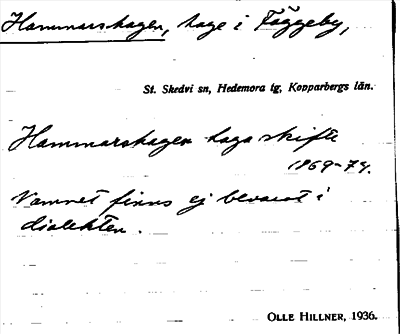 Hammarshagen, hage i Fäggeby,
St. Skedvi sn, Hedemora tg, Kopparbergs län.
Hammarshagen laga skifte
1869-74.
Namnet finns ej bevarat i
dialekten.
OLLE HILLNER, 1936.